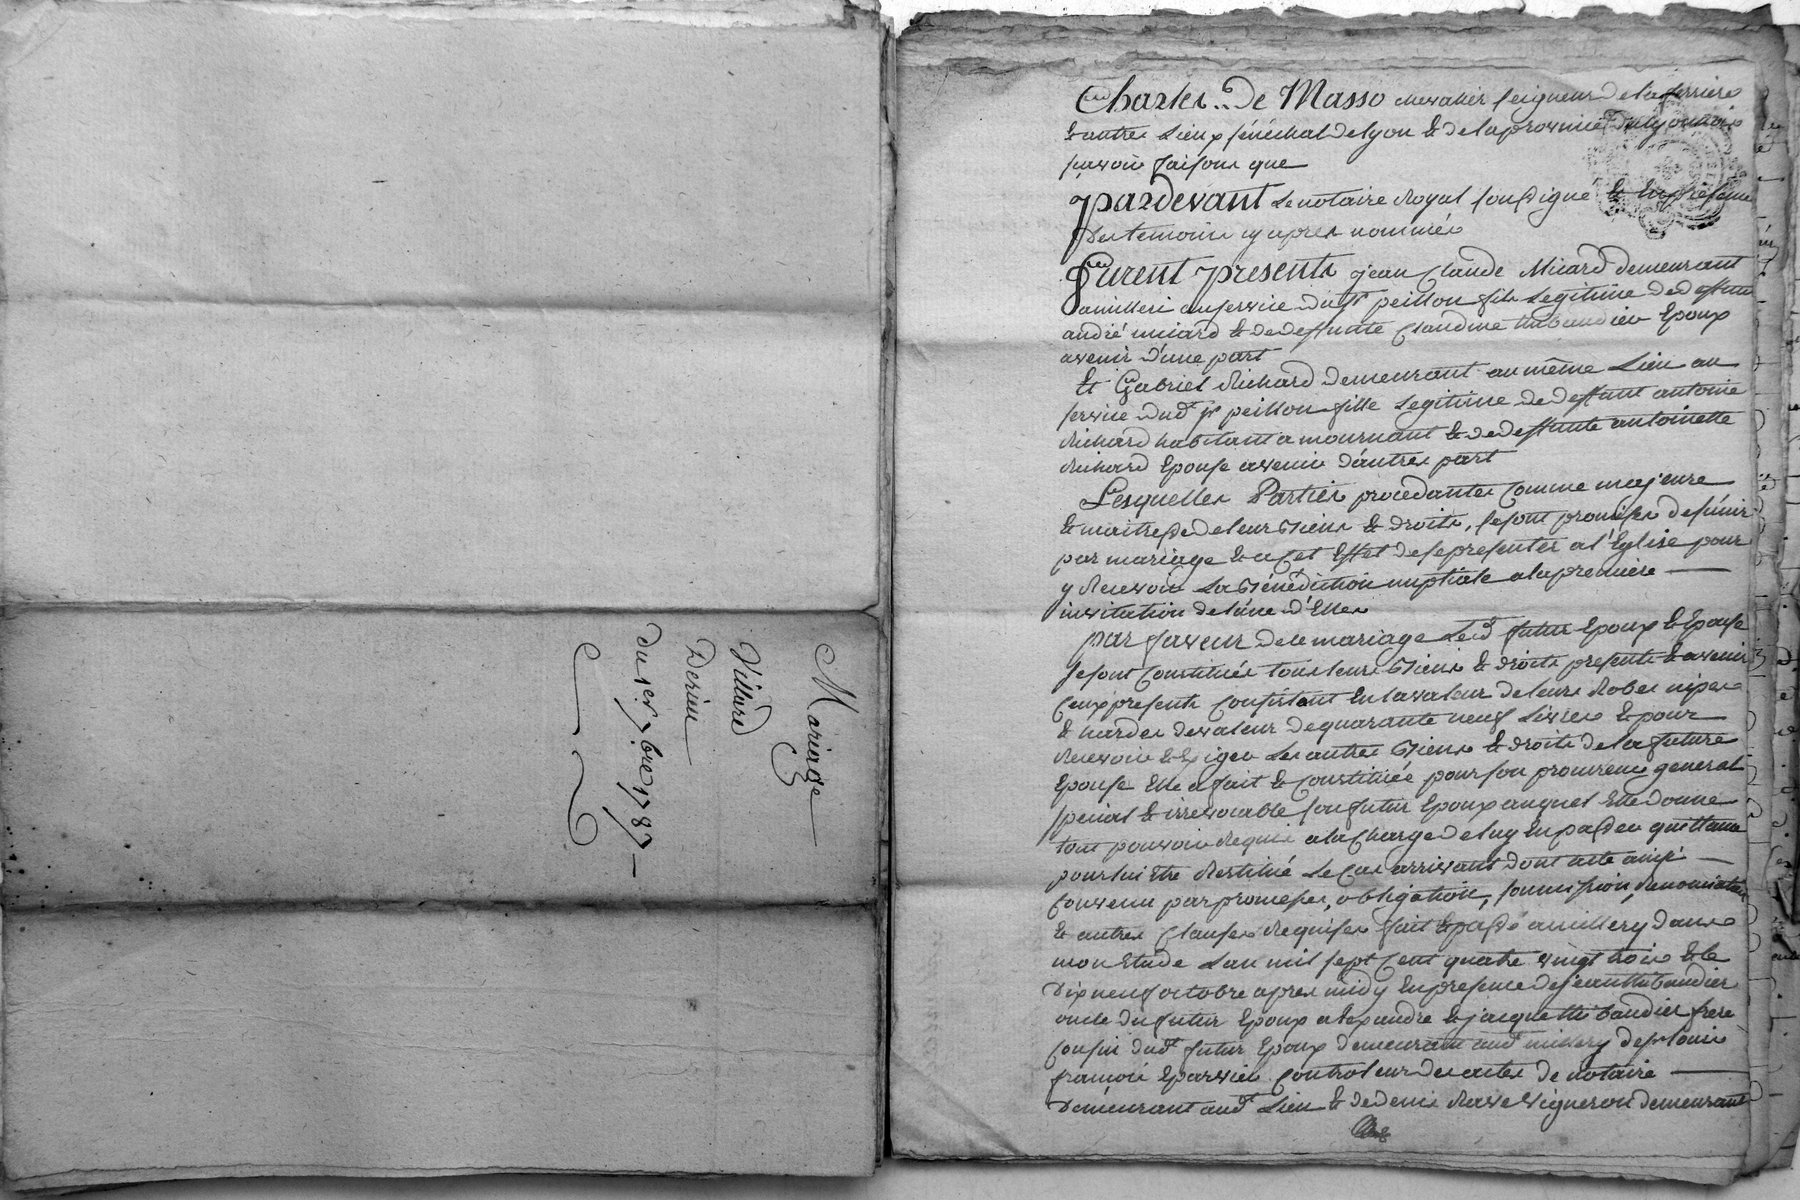 Mariage
Villard
Derine
du 1er 7bre 1787
Charles de Masso chevalier seigneur de la ferriere
& autres Lieux sénéchal de lyon & de la province du lyonnois
sçavoir faisons que
pardevant Le notaire Royal soussigné & En présence
des temoins cy apres nommés
furent presents jean Claude Micard demeurant
amilleri au service du sr peillon fils Legitime de deffunt
andré micard & de deffunte Claudine thibaudier Epoux
avenir d'une part
Et Gabriel Richard demeurant au même Lieu au
service dud. sr peillon fille Legitime de deffunt antoine
Richard habitant a mournant & de deffunte antoinette
Richard Epouse avenir d'autres part
Lesquelles Parties procedantes Comme majeure
& maitresse de leurs Biens & droits, se sont promises de s'unir
par mariage & a Cet Effet de se presenter a l'Eglise pour
y Recevoir La Bénédiction nuptiale a la premiere
invitation de l'une d'Elles
par faveur de ce mariage Led. futur Epoux & Epouse
se sont Constitués tous leurs Biens & droits presents & avenir
Ceux presents Consistant En la valeur de leurs Robes nipes
& hardes de valeur de quarante neuf Livres & pour
Recevoir & Exiger Les autres Biens & droits de la future
Epouse Elle a fait & Constitué pour son procureur general
special & irrevocable son futur Epoux auquel Elle donne
tout pouvoir Requis a la Charge de luy En passer quittance
pour lui Etre Restitué Le Cas arrivant dont acte ainsi
Convenu par promesses, obligation, soumission, Renonciation
& autres Clauses Requises fait & passé a millery dans
mon Etude L'an mil sept Cent quatre vingt trois & le
dix neuf octobre apres midy En presence de jean thibaudier
oncle du futur Epoux alexandre & jacque thibaudier frere
Cousin dud. futur Epoux demeurant aud. millery de sr louis
françois Eparvier Controleur des actes de notaire
demeurant aud. Lieu & de denis Rave vigneron demeurant